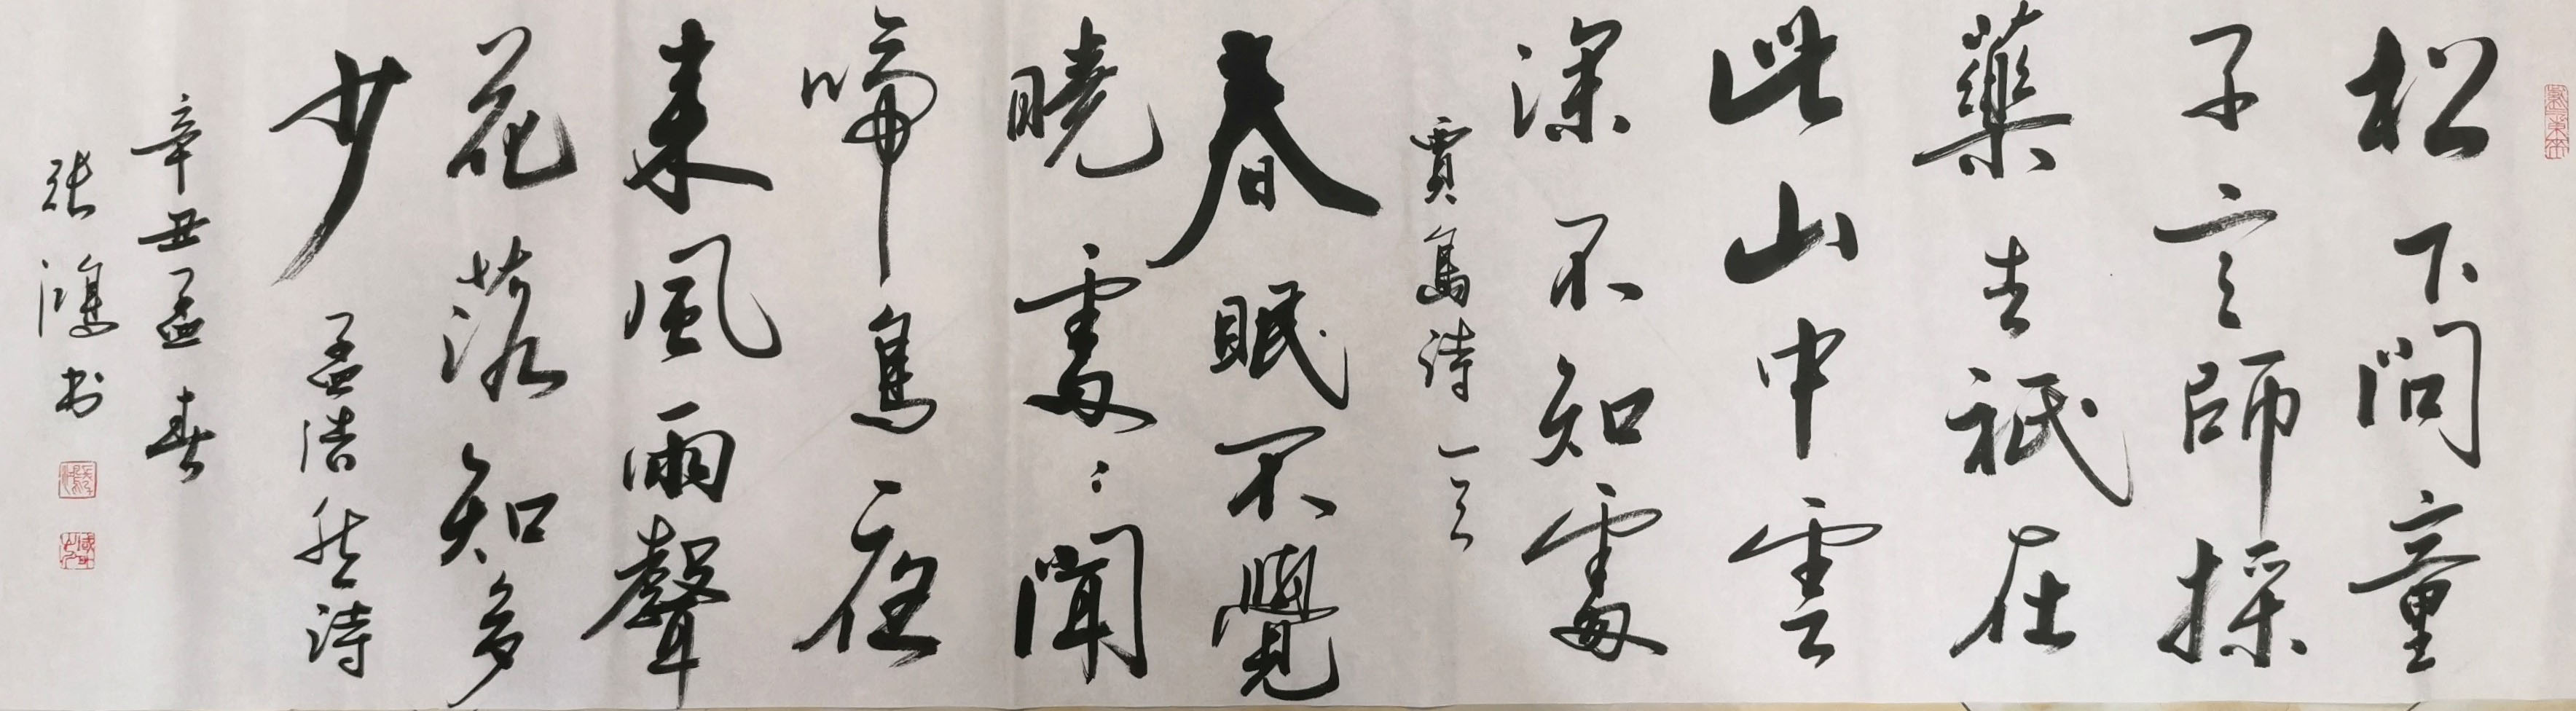 松下問童
子言師採
藥去祇在
此山中雲
深不知處
賈島詩一首
春眠不覺
曉處:聞
啼鳥夜
來風雨聲
花落知多
少
孟浩然詩
辛丑孟春
張鴻书